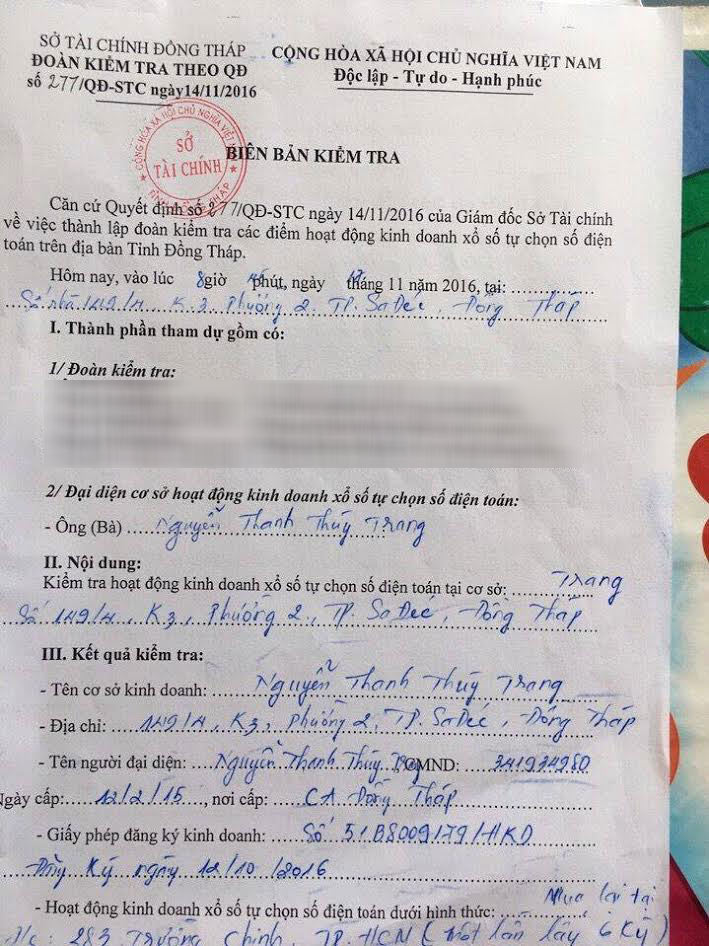 SỞ TÀI CHÍNH ĐỒNG THÁP
ĐOÀN KIỂM TRA THEO QĐ
số 277/QĐ-STC ngày14/11/2016
CỘNG HÒA XÃ HỘI CHỦ NGHĨA VIỆT NAM
Độc lập - Tự do - Hạnh phúc
CỘNG HÒA XÃ HỘI CHỦ NGHĨA VIỆT
SỞ
TÀI CHÍNH
BIÊN BẢN KIỂM TRA
Căn cứ Quyết định số 277/QĐ-STC ngày 14/11/2016 của Giám đốc Sở Tài chính
về việc thành lập đoàn kiểm tra các điểm hoạt động kinh doanh xổ số tự chọn số điện
toán trên địa bàn Tỉnh Đồng Tháp.
Hôm nay, vào lúc 8giờ phút, ngày tháng 11 năm 2016, tại:
Số nhà 149/4 K.3, Phường 2, TP. Sa Đéc, Đồng Tháp
I. Thành phần tham dự gồm có:
1/ Đoàn kiểm tra:
2/ Đại diện cơ sở hoạt động kinh doanh xổ số tự chọn số điện toán:
- Ông (Bà) Nguyễn Thanh Thúy Trang
II. Nội dung:
Kiểm tra hoạt động kinh doanh xổ số tự chọn số điện toán tại cơ sở: Trang
Số 149/4, K3, Phường 2, TP. Sa Đéc, Đồng Tháp
III. Kết quả kiểm tra:
- Tên cơ sở kinh doanh: Nguyễn Thanh Thúy Trang
- Địa chỉ: 149/4, K3, Phường 2, TP. Sa Đéc, Đồng Tháp
- Tên người đại diện: Nguyễn Thanh Thúy Trang CMND: 341934980
Ngày cấp: 12/2/15, nơi cấp: CA Đồng Tháp
- Giấy phép đăng ký kinh doanh: Số 51B8009179/HKD
Đăng Ký ngày 12/10/2016
- Hoạt động kinh doanh xổ số tự chọn số điện toán dưới hình thức: Mua lại tại
283 Trường Chinh, TP. HCM (một lần lấy 6 kỳ)